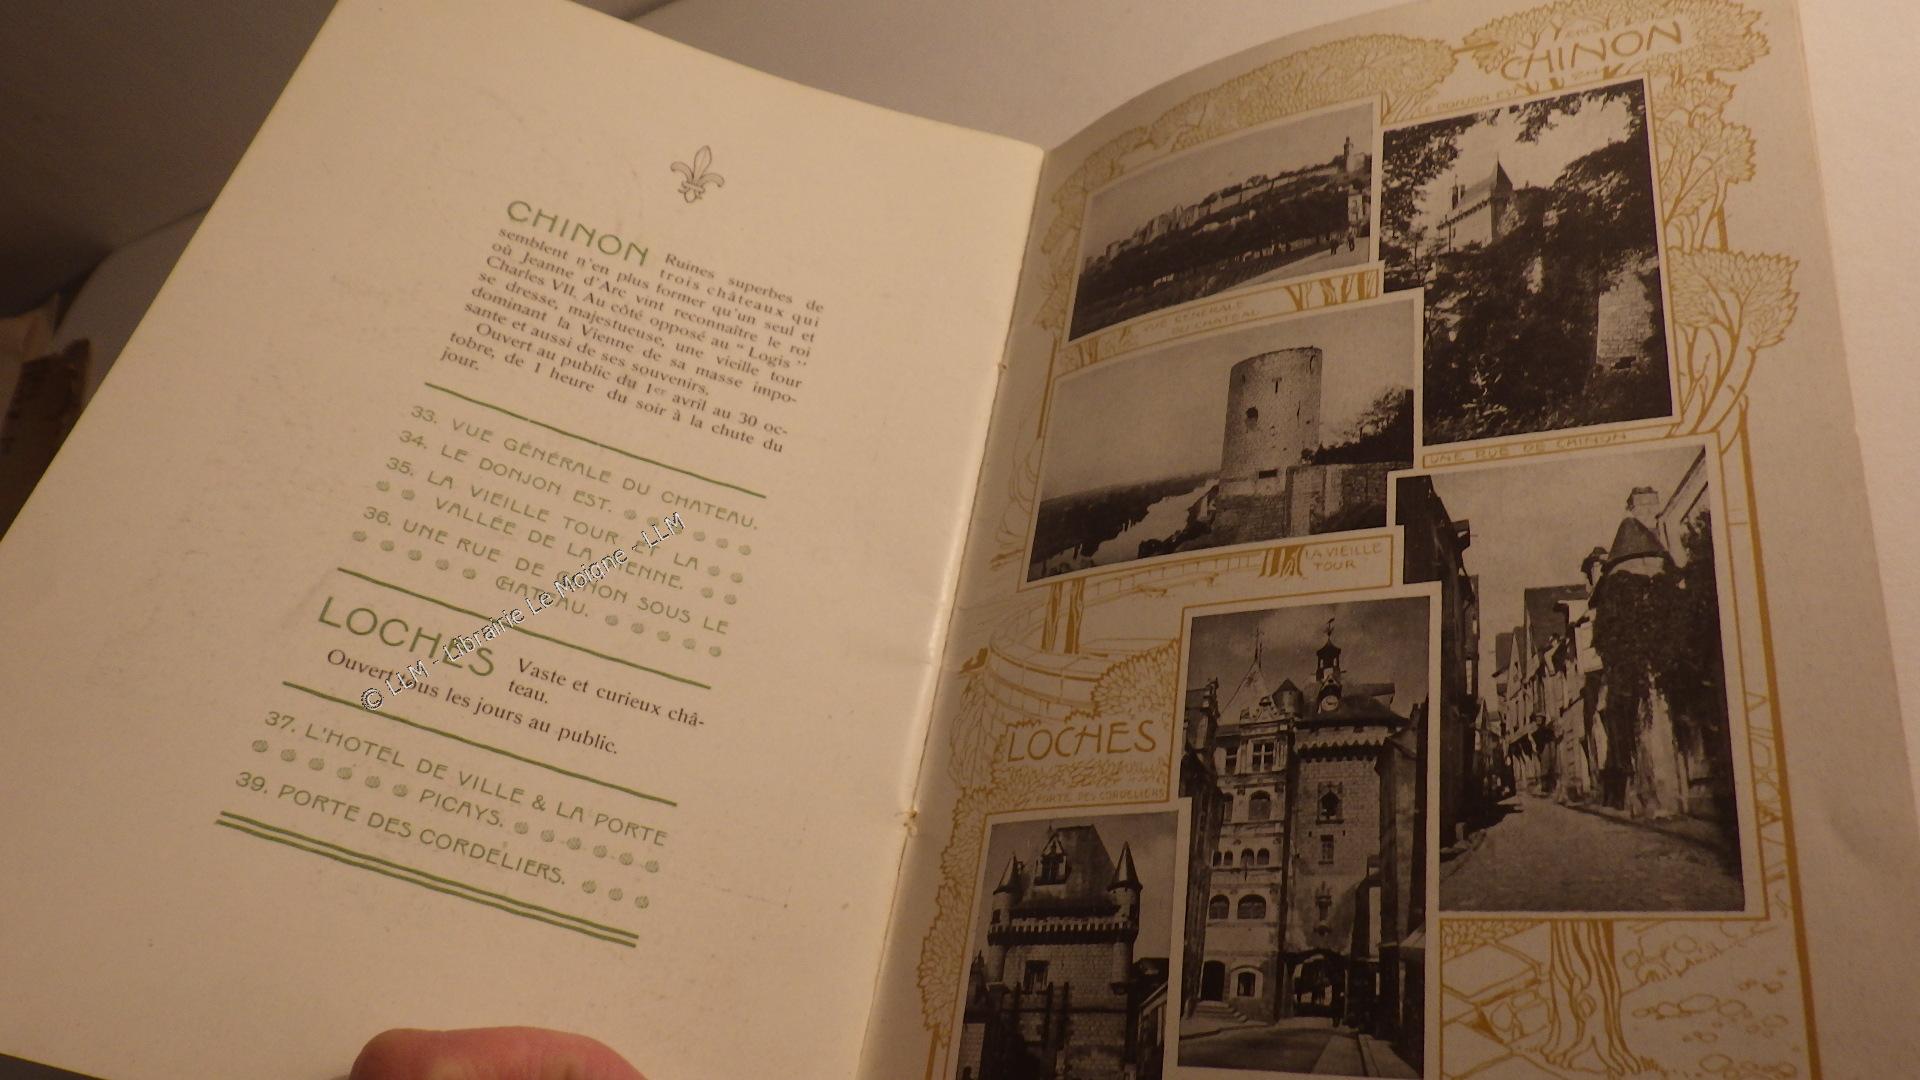 CHINON Ruines superbes de
trois châteaux qui
semblent n'en plus former qu'un seul et
où Jeanne d'Arc vint reconnaître le roi
Charles VII. Au côté opposé au “ Logis ”
se dresse, majestueuse, une vieille tour
dominant la Vienne de sa masse impo-
sante et aussi de ses souvenirs.
Ouvert au public du 1er avril au 30 oc-
tobre, de 1 heure du soir à la chute du
jour.
33. VUE GÉNÉRALE DU CHATEAU.
34. LE DONJON EST.
35. LA VIEILLE TOUR ET LA
VALLÉE DE LA VIENNE.
36. UNE RUE DE CHINON SOUS LE
CHATEAU.
LOCHES Vaste et curieux châ-
teau.
Ouvert tous les jours au public.
37. L'HOTEL DE VILLE & LA PORTE
PICAYS.
39. PORTE DES CORDELIERS.
© LLM - Librairie Le Moigne - LLM
CHINON
LE DONJON EST
VUE GENERALE
DU CHATEAU
UNE RUE DE CHINON
LA VIEILLE
TOUR
LOCHES
PORTE DES CORDELIERS